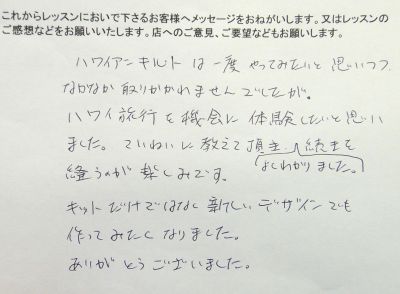 これからレッスンにおいで下さるお客様へメッセージをおねがいします。又はレッスンの
ご感想などをお願いいたします。店へのご意見、ご要望などもお願いします。
ハワイアンキルトは一度やってみたいと思いつつ
なかなか取りかかれませんでしたが。
ハワイ旅行を機会に体験したいと思い
ました。ていねいに教えて頂き、続きを
よくわかりました。
縫うのが楽しみです。
キットだけではなく新しいデザインでも
作ってみたくなりました。
ありがとうございました。